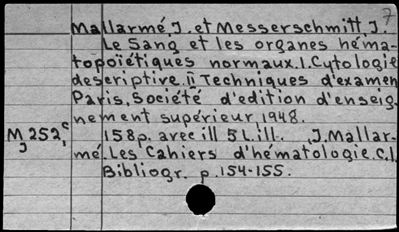 7
Mallarmé, J. et Messerschmitt, J.
Le Sang et les organes héma-
topoïétiques normaux. I. Cytologie
descriptive. II Techniques d'examen
Paris, Société d'edition d'enseig-
nement supérieur, 1948.
M 252, c 158 p. avec ill 5 L. ill. (J. Mallar-
J 1
mé. Les Cahiers d'hématologie. C. I.
Bibliogr. p. 154-155.